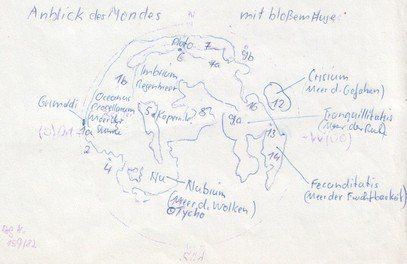 Anblick des Mondes mit bloßem Auge:
Plato 7
6 7a 9b
1b Imbrium
Regenmeer
Crisium
(Meer d. Gefahren)
Oceanus
Procellarum
Meer der
Stürme
Grimaldi
5 Kopernik. 8?
16 12
9a
Tranquillitatis
(Meer der Ruhe)
1a
13
2
14
4
Nu
Nubium
(Meer d. Wolken)
Tycho
Fecunditatis
(Meer der Fruchtbarkeit)